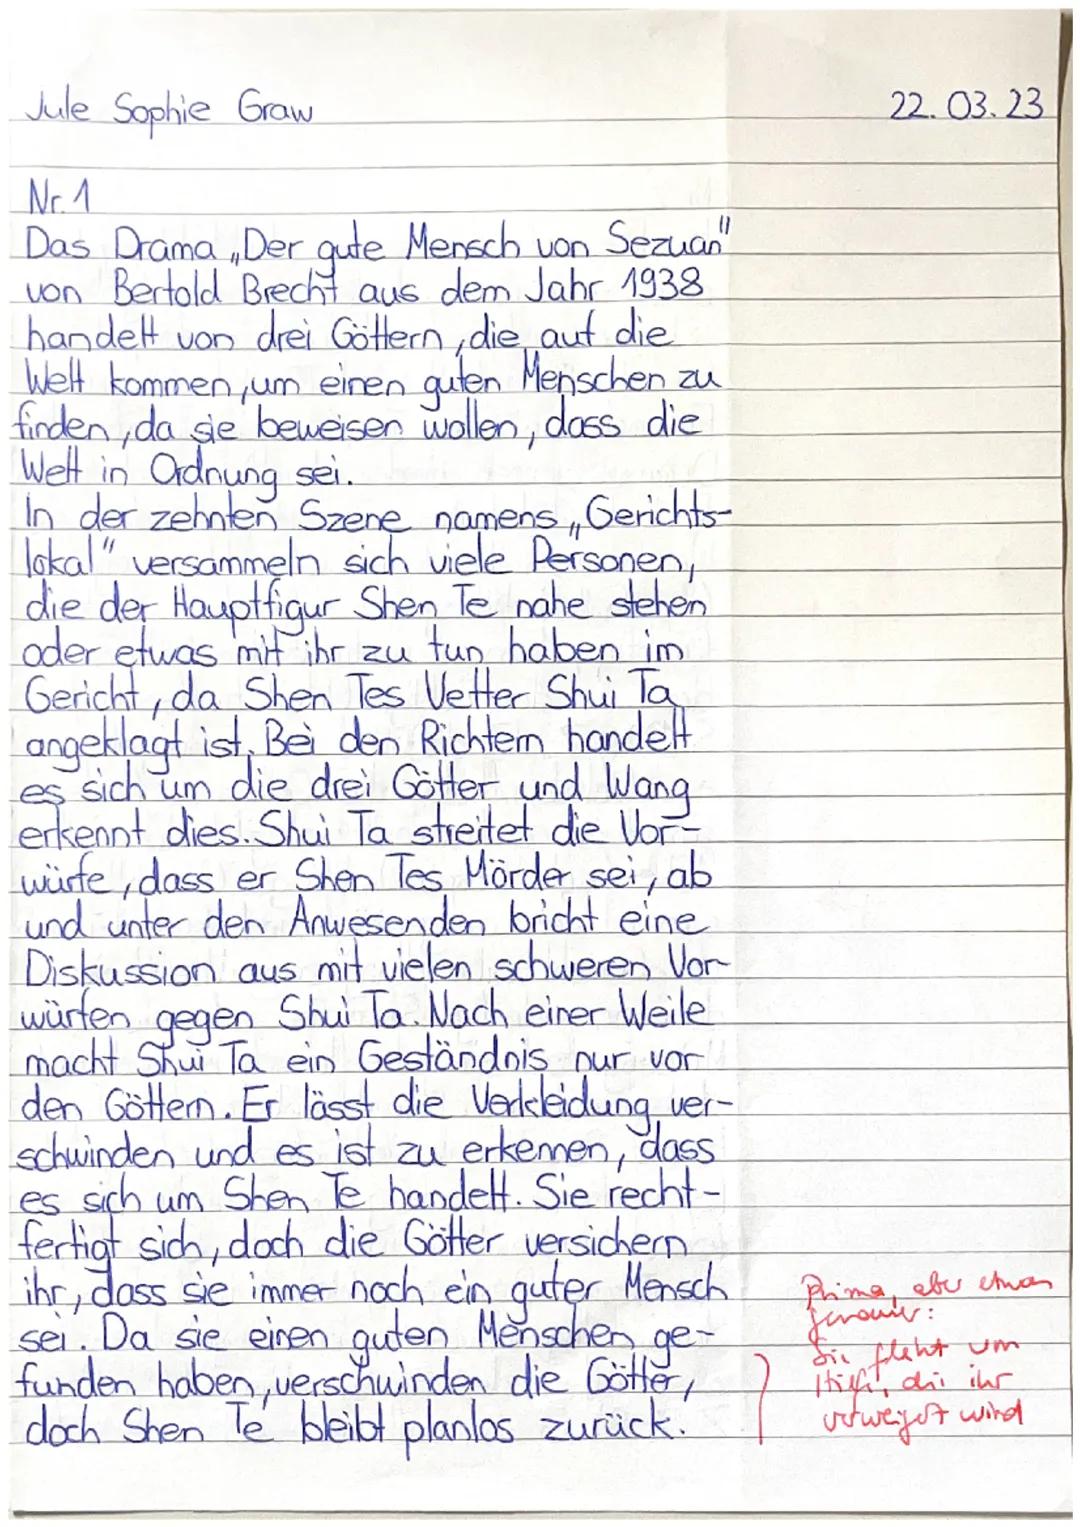 Jule Sophie Graw 22.03.23
Nr. 1
Das Drama „Der gute Mensch von Sezuan"
von Bertold Brecht aus dem Jahr 1938
handelt von drei Göttern, die auf die
Welt kommen, um einen guten Menschen zu
finden, da sie beweisen wollen, dass die
Welt in Ordnung sei.
In der zehnten Szene namens „Gerichts-
lokal" versammeln sich viele Personen,
die der Hauptfigur Shen Te nahe stehen
oder etwas mit ihr zu tun haben im
Gericht, da Shen Tes Vetter Shui Ta
angeklagt ist. Bei den Richtern handelt
es sich um die drei Götter und Wang
erkennt dies. Shui Ta streitet die Vor-
würfe, dass er Shen Tes Mörder sei, ab
und unter den Anwesenden bricht eine
Diskussion aus mit vielen schweren Vor-
würfen gegen Shui Ta. Nach einer Weile
macht Shui Ta ein Geständnis nur vor
den Göttern. Er lässt die Verkleidung ver-
schwinden und es ist zu erkennen, dass
es sich um Shen Te handelt. Sie recht-
fertigt sich, doch die Götter versichern
ihr, dass sie immer noch ein guter Mensch
sei. Da sie einen guten Menschen ge-
funden haben, verschwinden die Götter,
doch Shen Te bleibt planlos zurück.
Prima, aber etwas
genauer:
Sie fleht um
Hilfe, die ihr
verweigert wird